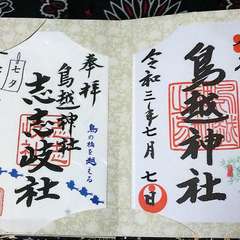 鳥越神社
令和三年七月七日
奉拝
鳥越神社
志志岐社
鳥の橋を越える
七夕